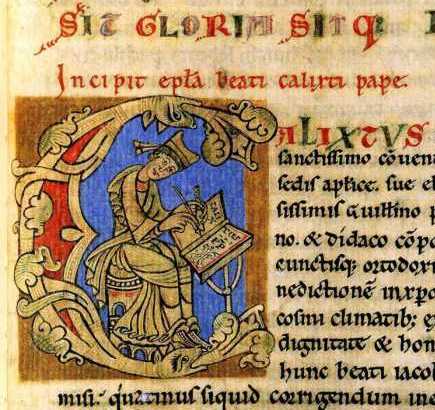 SIT GLORIA SIT Q
Incipit epła beati calixti pape.
CALIXTUS
sanctissimo cōuen
sedis aplice. sue el
sissimis Guillino p
no. & didaco cōpo
cunctisq; ortodox
nedictionē in xpo
cosmi climatib; e
dignitate & hon
hunc beati iacob
misi: quatinus siquid corrigendum in eo